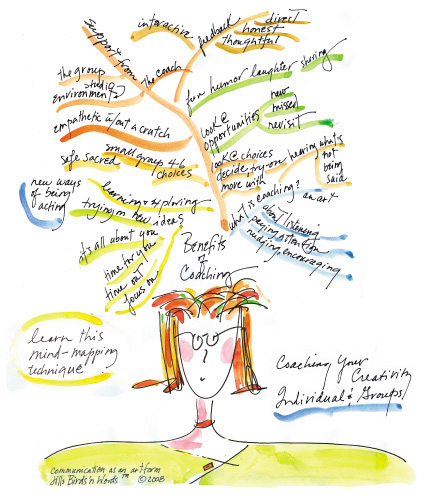 support from
interactive
feedback
direct
honest
thoughtful
the group
the coach
studio
environments
empathetic w/out a crutch
fun humor laughter sharing
look @
opportunities
new
missed
revisit
safe sacred
small group 4-6
choices
look @ choices
decide, try-on
move with
hearing what's
not
being
said
new ways
of being
acting
learning exploring
trying on new ideas
what is coaching? an art
about listening
paying attention
nudging, encouraging
it's all about you
time for you
time out
focus on
Benefits
of
Coaching
learn this
mind-mapping
technique
Coaching Your
Creativity
Individual & Groups!
communication as an artform
Birds n Words™ ©2008